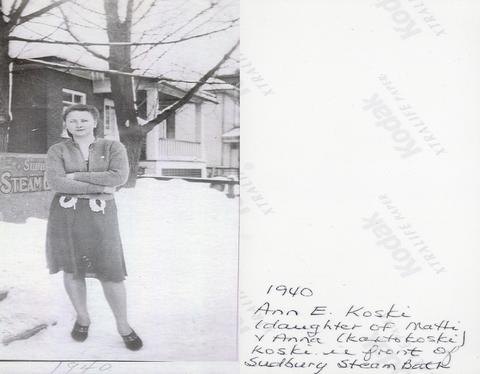 STEAM
1940
1940
Ann E. Koski
(daughter of Matti
& Anna (Kartokoski)
Koski in front of
Sudbury Steam Bath
Kodak
XTRALIFE PAPER
Kodak
XTRALIFE PAPER
Kodak
XTRALIFE PAPER